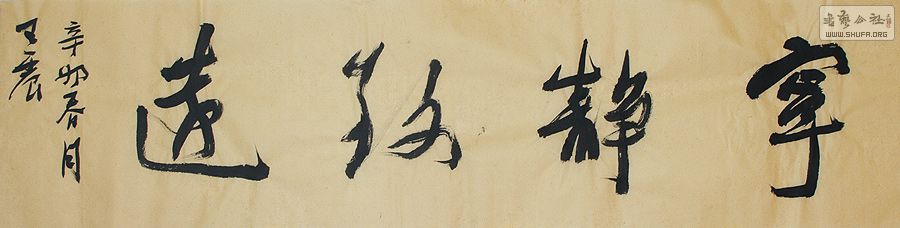 寧靜致遠
辛卯春月
王震
書藝公社
WWW.SHUFA.ORG